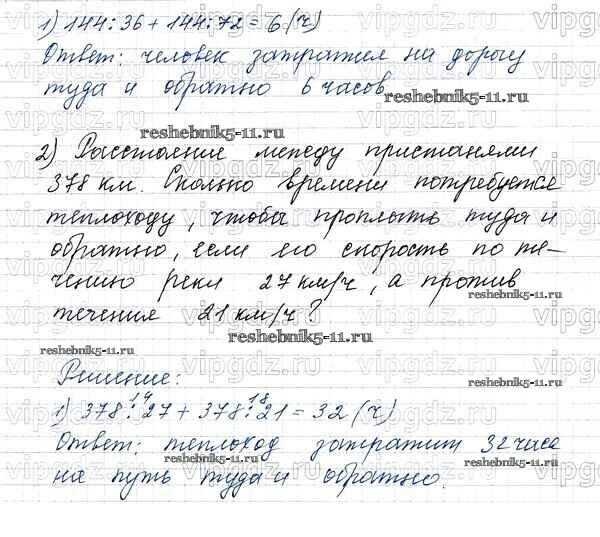 1) 144:36 + 144:72 = 6 (ч)
Ответ: человек затратил на дорогу
туда и обратно 6 часов.
reshebnik5-11.ru
reshebnik5-11.ru
2) Расстояние между пристанями
378 км. Сколько времени потребуется
теплоходу, чтобы проплыть туда и
обратно, если его скорость по те-
чению реки 27 км/ч, а против
reshebnik5-11.ru
течения 21 км/ч?
reshebnik5-11.ru
reshebnik5-11.ru
Решение:
reshebnik5-11.ru
14 18
1) 378:27 + 378:21 = 32 (ч)
Ответ: теплоход затратит 32 часа
reshebnik5-11.ru
reshebnik5-11.ru
на путь туда и обратно.
vipgdz.ru